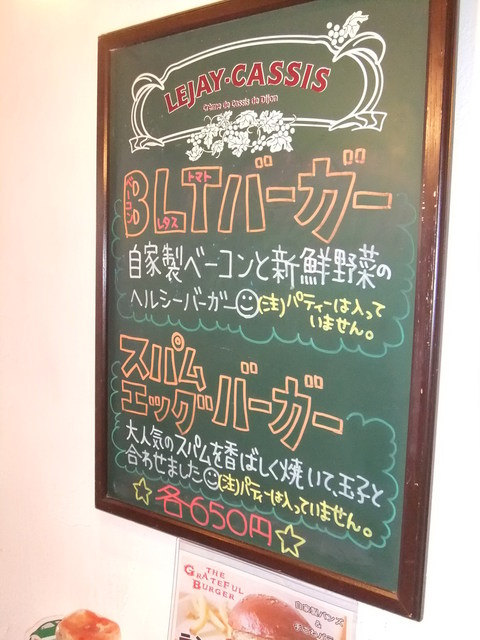 LEJAY-CASSIS
Crème de Cassis de Dijon
BLTバーガー
ベーコン
レタス
トマト
自家製ベーコンと新鮮野菜の
ヘルシーバーガー(注)パティーは入って
いません。
スパム
エッグバーガー
大人気のスパムを香ばしく焼いて、玉子と
合わせました(注)パティーは入っていません。
☆各650円☆
THE
GRATEFUL
BURGER
自家製バンズ
&